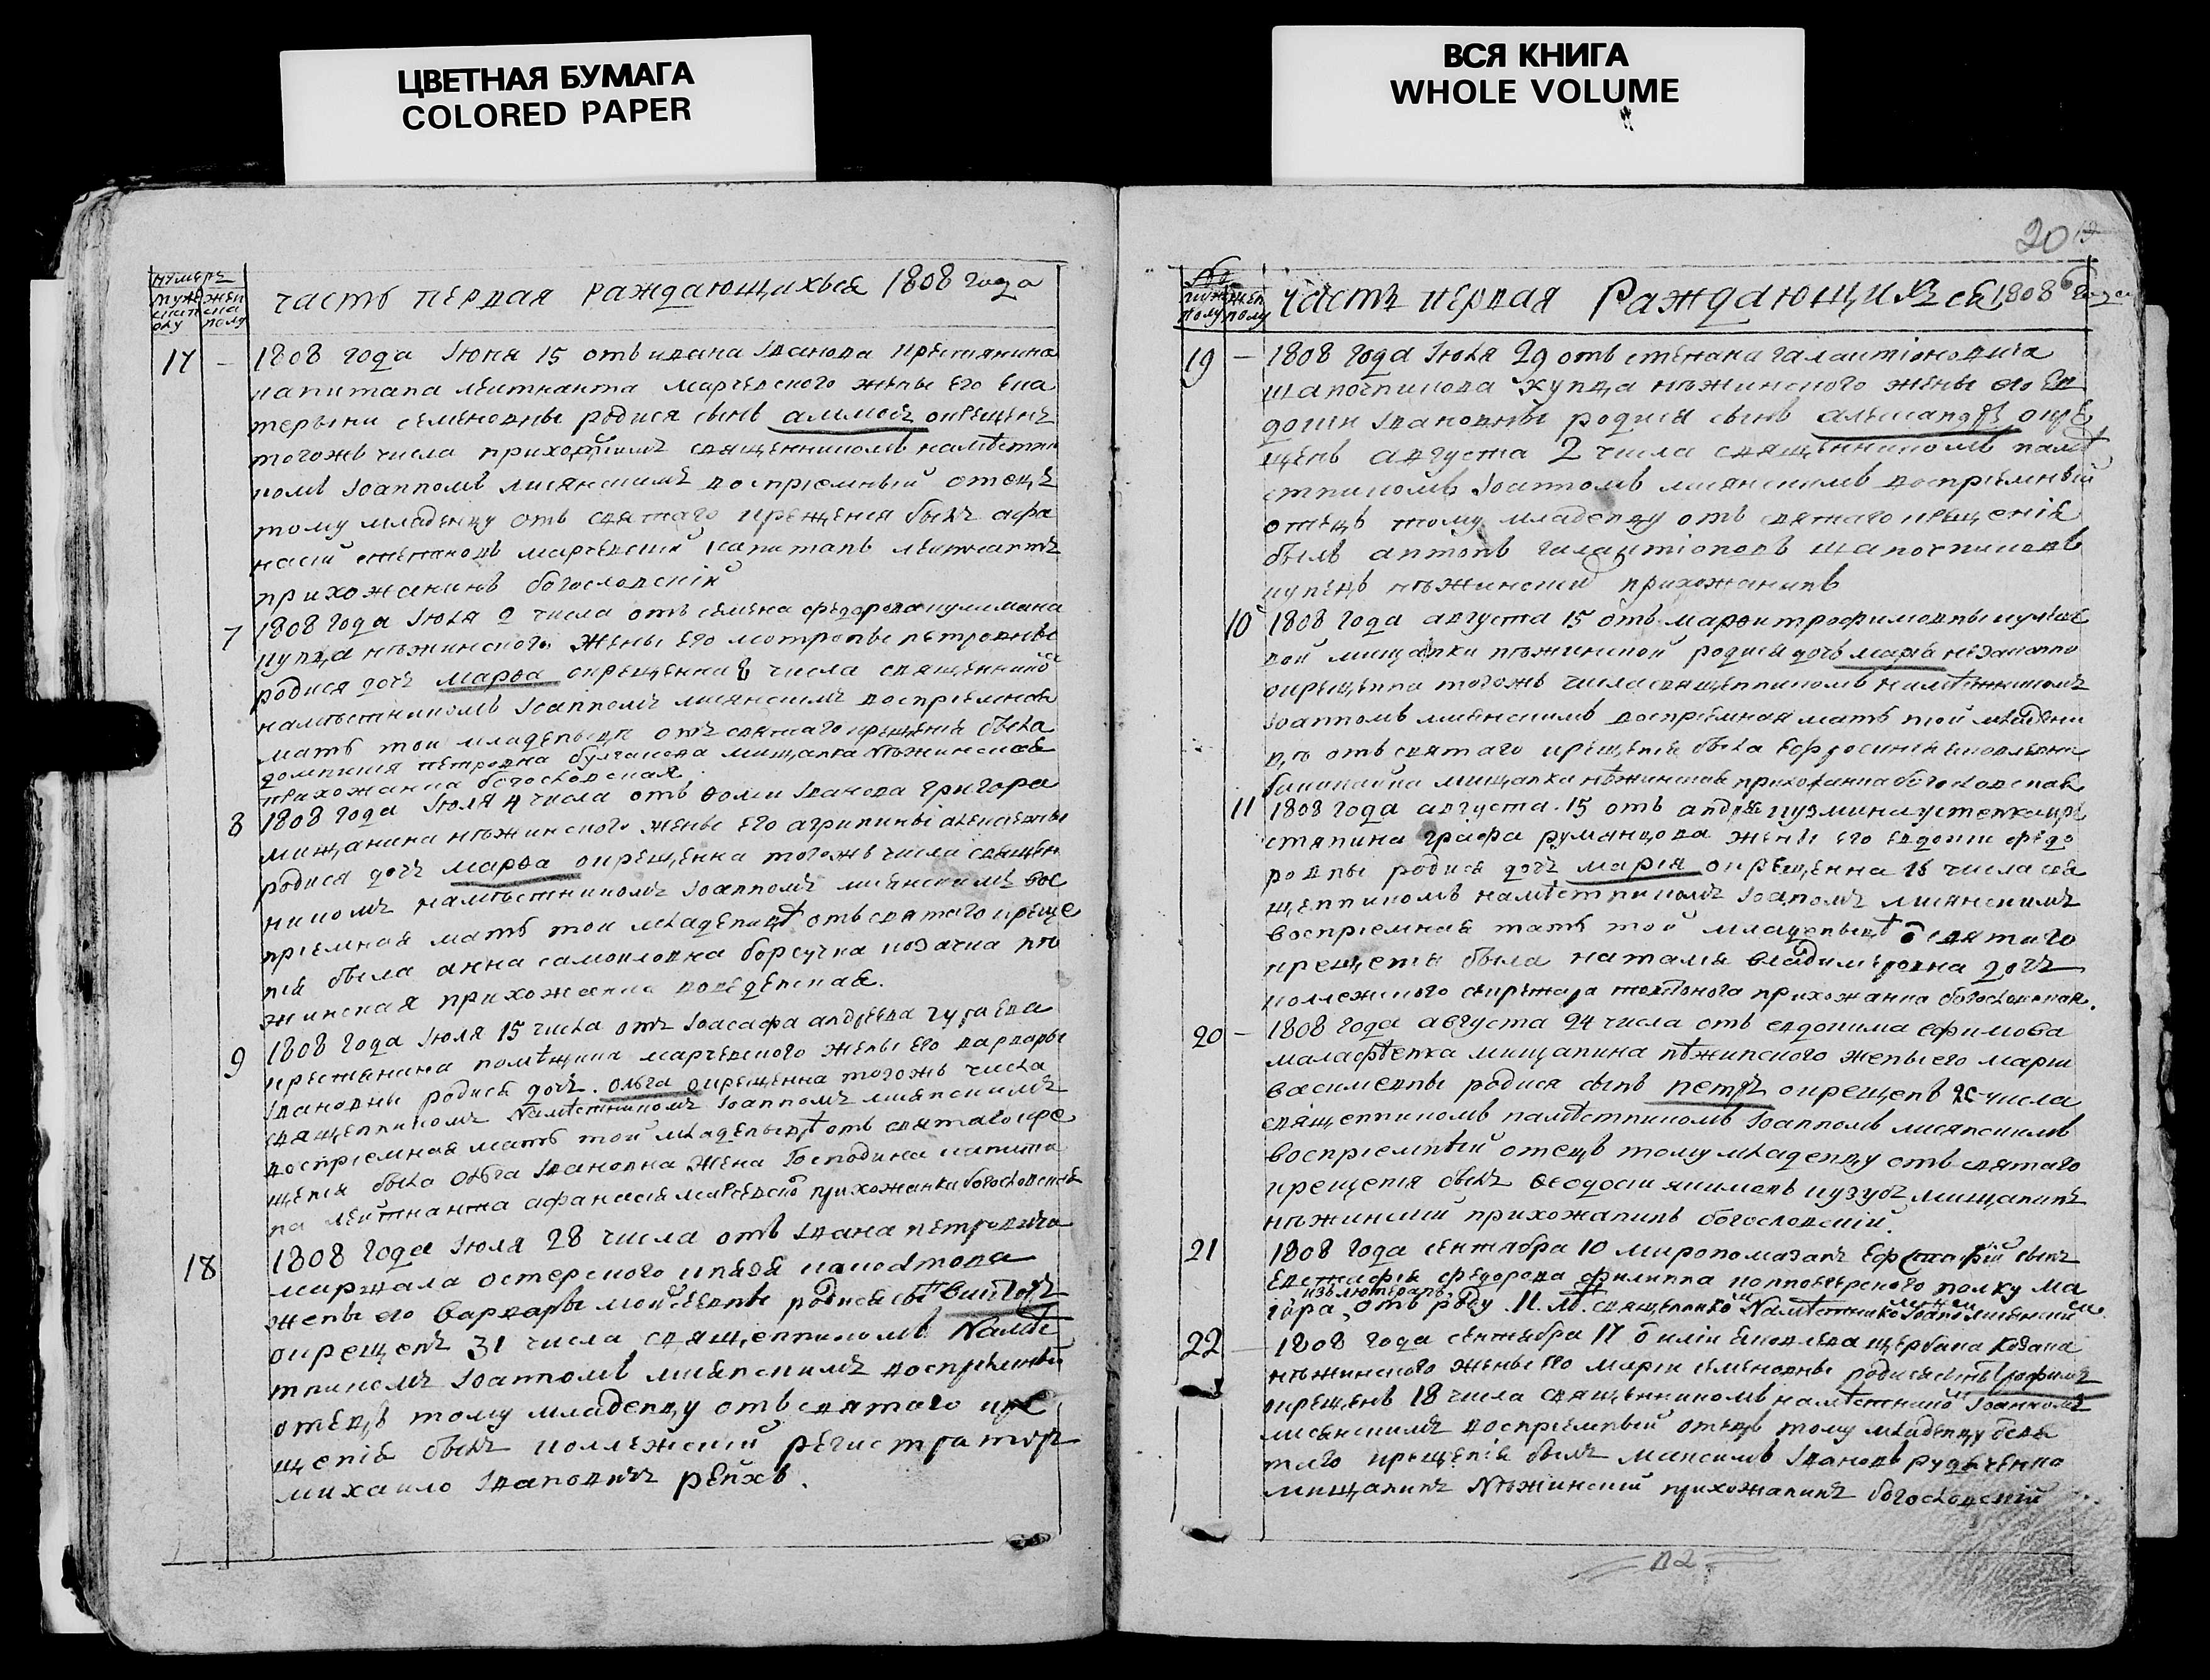 ЦВЕТНАЯ БУМАГА
COLORED PAPER
ВСЯ КНИГА
WHOLE VOLUME
20
часть первая раждающихься 1808 года
17 — 1808 года Июня 15 отъ ивана Иванова крестянина
капитана леитнанта марчевского жены его ека
терыни семеновны родися сынъ аммосъ окрещенъ
тогожъ числа приходскимъ священникомъ намѣстни
комъ Иоанномъ лисянскимъ воспрiемный отецъ
тому младенцу отъ святаго крещения былъ афа
насiй степановъ марчевский капитанъ леитнантъ
прихожанинъ богословскiй
7 1808 года Июля числа отъ семена федорова
купца нѣжинского жены его мотроны петровны
родися дочъ марѳа окрещенна числа священнико
намѣстникомъ Иоанномъ лисянскимъ воспрiемная
мать тои младеныци отъ святаго крещенiя была
домникия петровна булгакова мищанка Нѣжинская
прихожанка богословская
8 1808 года Июля 4 числа отъ ѳоми Иванова григора
мищанина нѣжинского жены его агрипини алексѣевны
родися дочъ марѳа окрещенна тогожъ числа священ
никомъ намѣстникомъ Иоанномъ лисянскимъ вос
прiемная мать тои младеницѣ отъ святаго креще
нiя была анна самоиловна борсучка козачка нѣ
жинская прихожанка введенская.
9 1808 года Июля 15 числа отъ Иоасафа андреева
крестянина помѣщика марчевского жены его варвары
Ивановны родися дочъ ольга окрещенна тогожъ числа
священникомъ Намѣстникомъ Иоанномъ лисянскимъ
воспрiемная мать той младеныцѣ отъ святаго кре
щенiя была Ольга Ивановна Жена Господина капита
на леитнанта афанасiя марчевско прихожанка богословская
18 1808 года Июля 28 числа отъ Ивана петровича
маршала остерского князя
жены его варвары моисеевны родися сынъ викторъ
окрещенъ 31 числа священникомъ Намѣс
тникомъ Иоанномъ лисянскимъ воспрiемный
отецъ тому младенцу отъ святаго кре
щенiя былъ коллежский регистраторъ
михаило Ивановичъ рейхъ.
часть первая Раждающихъся 1808 года
19 — 1808 года Июля 29 отъ степана галактiоновича
шапочникова купца нѣжинского жены его ев
докии Ивановны родися сынъ александръ окре
щенъ августа 2 числа священникомъ намѣ
стникомъ Иоанномъ лисянскимъ воспрiемный
отецъ тому младенцу отъ святаго крещенiя
былъ антонъ галактiоновъ шапочниковъ
купецъ нѣжинский прихожанинъ
10 1808 года августа 15 отъ марѳи трофимовны
вои мищанки нѣжинской родися дочъ марiя незаконно
окрещенна тогожъ числа священникомъ намѣстникомъ
Иоанномъ лисянскимъ воспрiемная мать той младени
цѣ отъ святаго крещенiя была Ефросиния
мищанка нѣжинская прихожанка богословская
11 1808 года августа 15 отъ андрея кузмина устенка кре
стянина графа румянцова жены его евдокии федо
ровны родися дочъ марiя окрещенна 16 числа свя
щенникомъ намѣстникомъ Иоаномъ лисянскимъ
воспрiемная мать той младеныцѣ ѿ святаго
крещеня была наталiя владимѣровна дочъ
колежского секретара прихожанка богословская.
20 — 1808 года августа 24 числа отъ евдокима ефимова
малафѣенка мищанина нѣжинского жены его марии
василиевны родися сынъ петръ окрещенъ числа
священникомъ намѣстникомъ Иоанномъ лисянскимъ
воспрiемный отецъ тому младенцу отъ святаго
крещенiя былъ ѳеодосии якимовъ кузубъ мищанинъ
нѣжинский прихожанинъ богословскiй.
21 1808 года сентября 10 миропомазанъ Ефстафiй сынъ
Евстафiя федорова филиппа полку ма
изъ лютеранъ
iора отъ роду лѣ. священнико Намѣстнико Иоано лисянски
22 — 1808 года сентября 17 ѿ илiи щербака козака
нѣжинского жены его марии семеновны родися сынъ трофимъ
окрещенъ 18 числа священникомъ намѣстнико Иоанномъ
лисянскимъ воспрiемный отецъ тому младенцу ѿ свя
таго крещенiя былъ максимъ Ивановъ рудченко
мищанинъ Нѣжинский прихожанинъ богословскiй